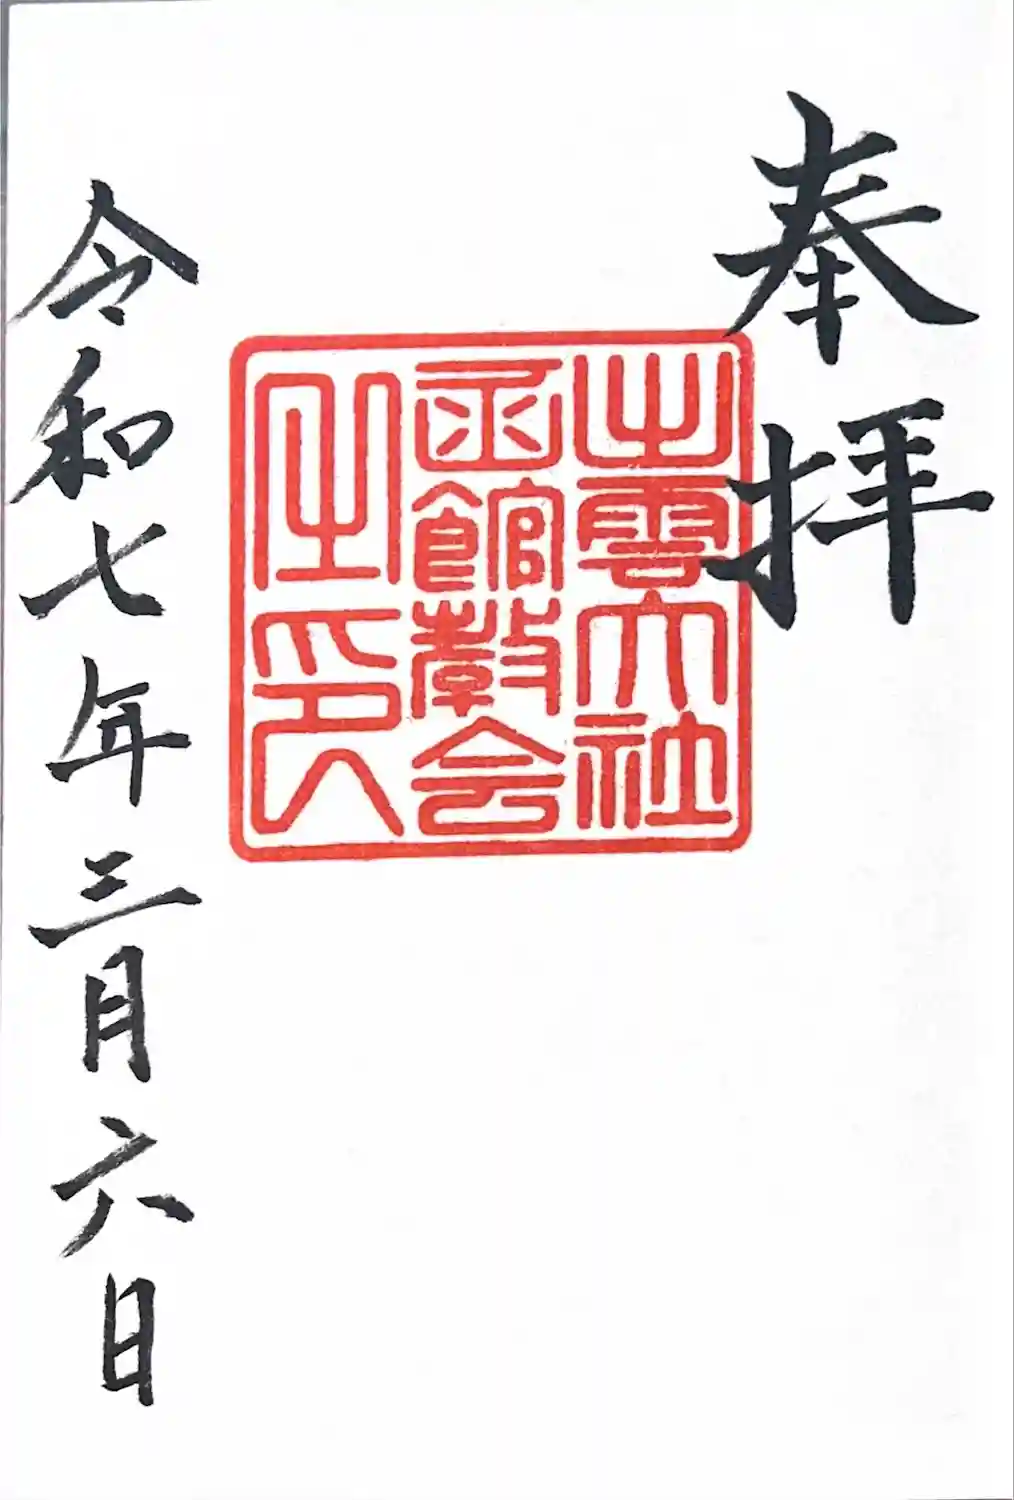 奉拝
出雲大社
函館教会
之印
令和七年三月六日